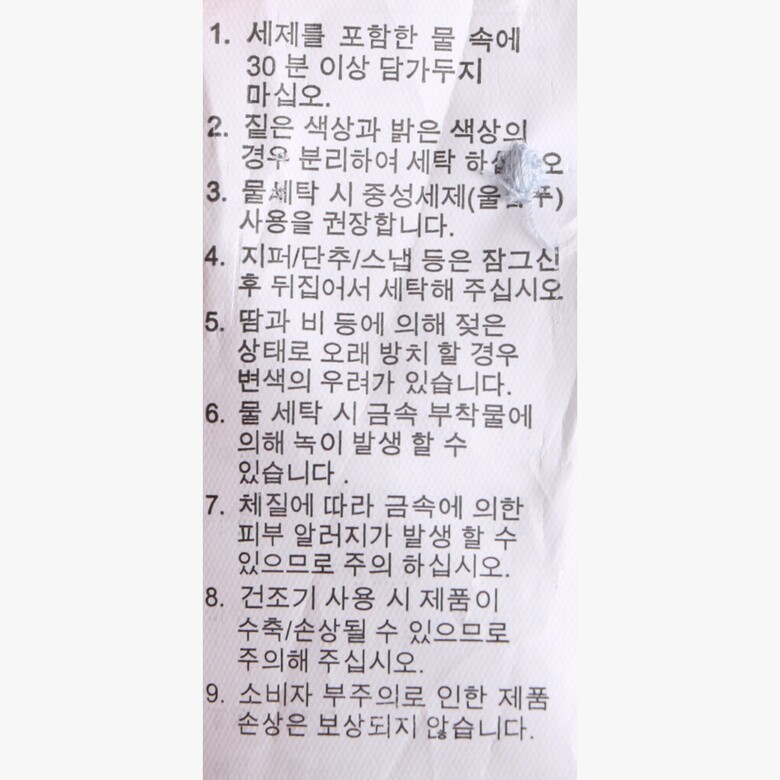 1. 세제를 포함한 물 속에
30 분 이상 담가두지
마십오.
2. 짙은 색상과 밝은 색상의
경우 분리하여 세탁
3. 물세탁 시
사용을 권장합니다.
4. 지퍼/단추/스냅 등은 잠그신
후 뒤집어서 세탁해 주십시오
5. 땀과 비 등에 의해 젖은
상태로 오래 방치 할 경우
변색의 우려가 있습니다.
6. 물 세탁 시 금속 부착물에
의해 녹이 발생 할 수
있습니다 .
7. 체질에 따라 금속에 의한
피부 알러지가 발생 할 수
있으므로 주의 하십시오.
8. 건조기 사용 시 제품이
수축/손상될 수 있으므로
주의해 주십시오.
9. 소비자 부주의로 인한 제품
손상은 보상되지 않습니다.